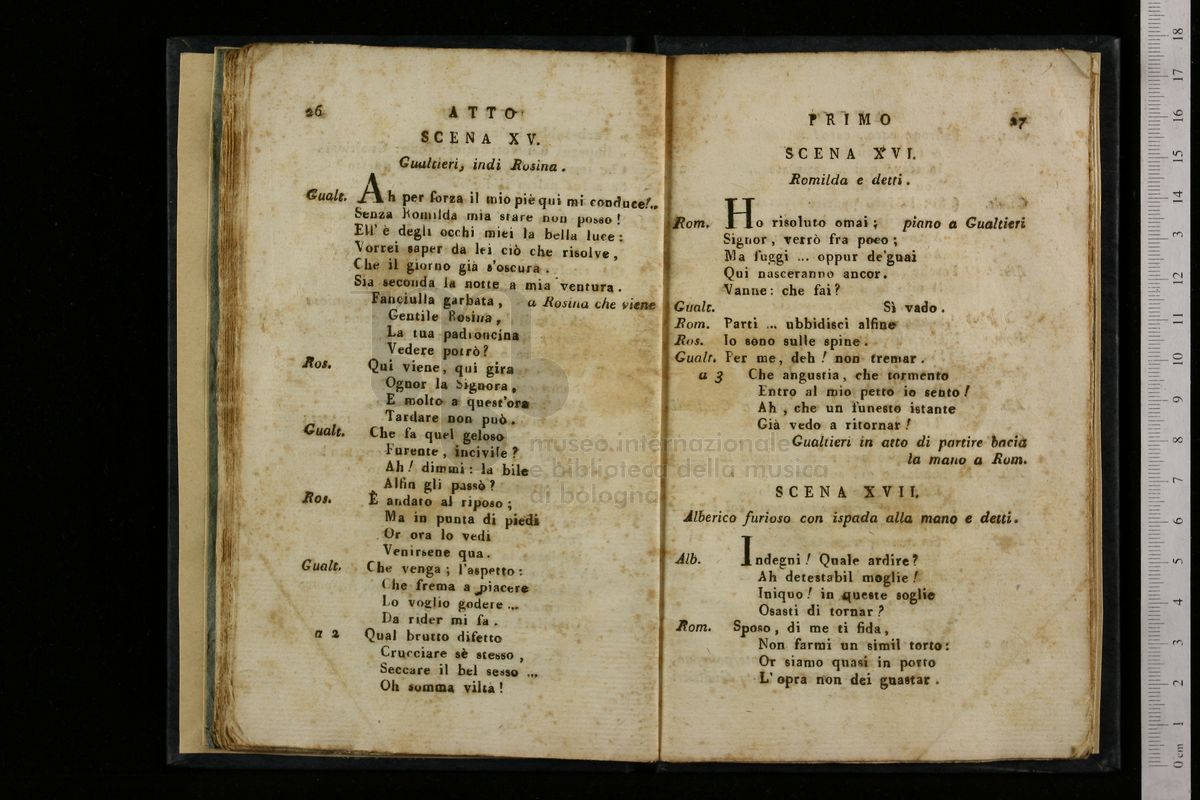 26
ATTO
SCENA XV.
Gualtieri, indi Rosina.
Gualt. Ah per forza il mio piè qui mi conduce!..
Senza Romilda mia stare non posso!
Ell' è degli occhi miei la bella luce:
Vorrei saper da lei ciò che risolve,
Che il giorno già s'oscura.
Sia seconda la notte a mia ventura.
Fanciulla garbata, a Rosina che viene
Gentile Rosina,
La tua padroncina
Vedere potrò?
Ros. Qui viene, qui gira
Ognor la Signora,
E molto a quest'ora
Tardare non può.
Gualt. Che fa quel geloso
Furente, incivile?
Ah! dimmi: la bile
Alfin gli passò?
Ros. È andato al riposo;
Ma in punta di piedi
Or ora lo vedi
Venirsene qua.
Gualt. Che venga; l'aspetto:
Che frema a piacere
Lo voglio godere ...
Da rider mi fa.
a 2 Qual brutto difetto
Crucciare sè stesso,
Seccare il bel sesso ...
Oh somma viltà!
PRIMO
27
SCENA XVI.
Romilda e detti.
Rom. Ho risoluto omai; piano a Gualtieri
Signor, verrò fra poco;
Ma fuggi ... oppur de'guai
Qui nasceranno ancor.
Vanne: che fai?
Gualt. Sì vado.
Rom. Parti ... ubbidisci alfine
Ros. Io sono sulle spine.
Gualt. Per me, deh! non tremar.
a 3 Che angustia, che tormento
Entro al mio petto io sento!
Ah, che un funesto istante
Già vedo a ritornar!
Gualtieri in atto di partire bacia
la mano a Rom.
SCENA XVII.
Alberico furioso con ispada alla mano e detti.
Alb. Indegni! Quale ardire?
Ah detestabil moglie!
Iniquo! in queste soglie
Osasti di tornar?
Rom. Sposo, di me ti fida,
Non farmi un simil torto:
Or siamo quasi in porto
L' opra non dei guastar.
museo internazionale
e biblioteca della musica
di bologna
0 cm 1 2 3 4 5 6 7 8 9 10 11 12 13 14 15 16 17 18